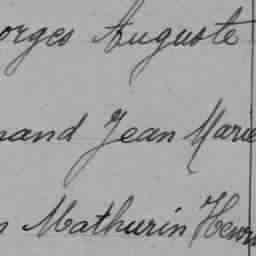 orges Auguste
nand Jean Marie
Mathurin Henri